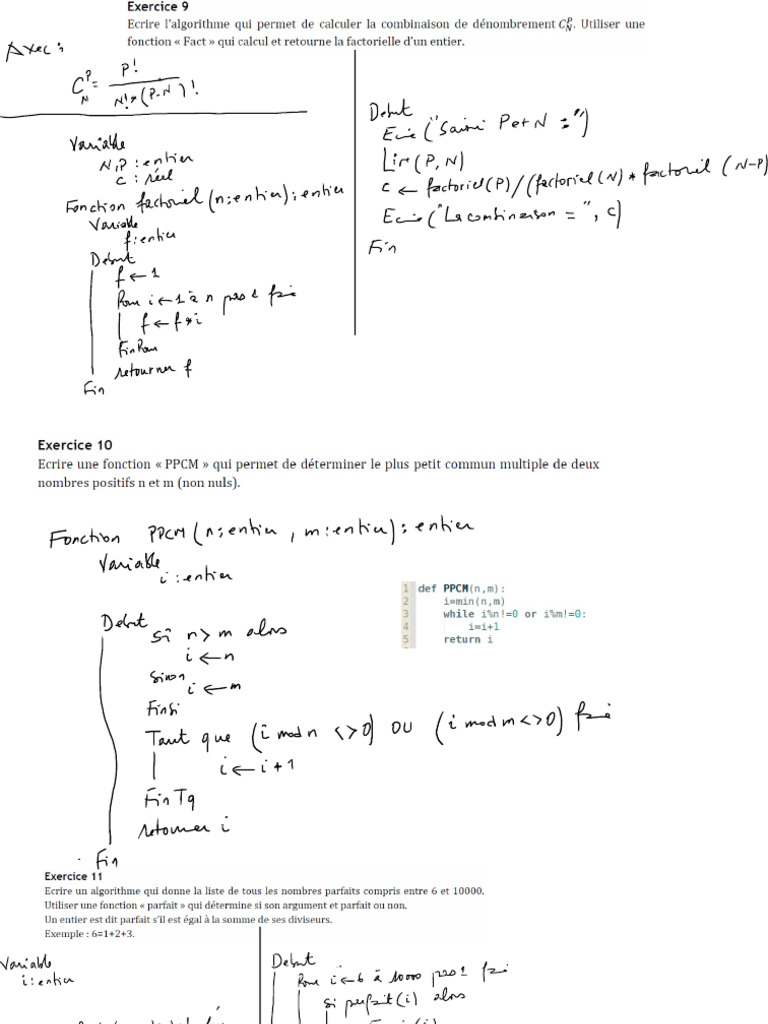 Exercice 9
Ecrire l'algorithme qui permet de calculer la combinaison de dénombrement C_N^P. Utiliser une
fonction « Fact » qui calcul et retourne la factorielle d'un entier.
Avec :
C_N^P = P! / N!*(P-N)!
Variable
N,P : entier
c : réel
Fonction factoriel (n:entier) : entier
Variable
f:entier
Debut
f ← 1
Pour i ← 1 à n pas 1 faire
f ← f*i
FinPour
retourner f
Fin
Debut
Ecrire ("Saisir P et N :")
Lire (P, N)
c ← factoriel(P) / (factoriel(N) * factoriel (N-P)
Ecrire ("La combinaison = ", c)
Fin
Exercice 10
Ecrire une fonction « PPCM » qui permet de déterminer le plus petit commun multiple de deux
nombres positifs n et m (non nuls).
Fonction PPCM (n:entier , m:entier) : entier
Variable
i : entier
Debut
si n > m alors
i ← n
Sinon
i ← m
FinSi
Tant que (i mod n <> 0) OU (i mod m <> 0) faire
i ← i + 1
Fin Tq
retourner i
Fin
1 def PPCM(n,m):
2 i=min(n,m)
3 while i%n!=0 or i%m!=0:
4 i=i+1
5 return i
Exercice 11
Ecrire un algorithme qui donne la liste de tous les nombres parfaits compris entre 6 et 10000.
Utiliser une fonction « parfait » qui détermine si son argument et parfait ou non.
Un entier est dit parfait s'il est égal à la somme de ses diviseurs.
Exemple : 6=1+2+3.
Variable
i : entier
Debut
Pour i ← 6 à 10000 pas 1 faire
si parfait(i) alors